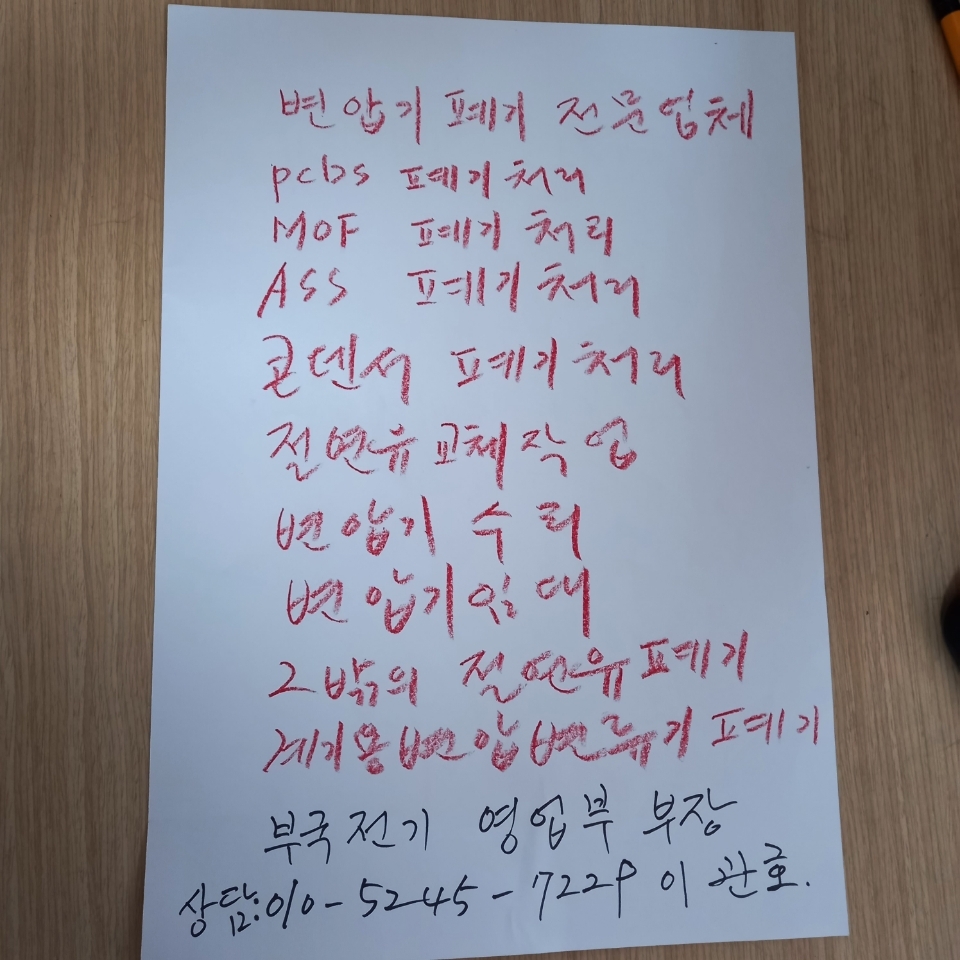 변압기 폐기 전문업체
pcbs 폐기처리
MOF 폐기처리
ASS 폐기처리
콘덴서 폐기처리
절연유교체작업
변압기 수리
변압기임대
그밖의 절연유폐기
계기용변압변류기 폐기
부국전기 영업부 부장
상담:010-5245-7229 이관호.